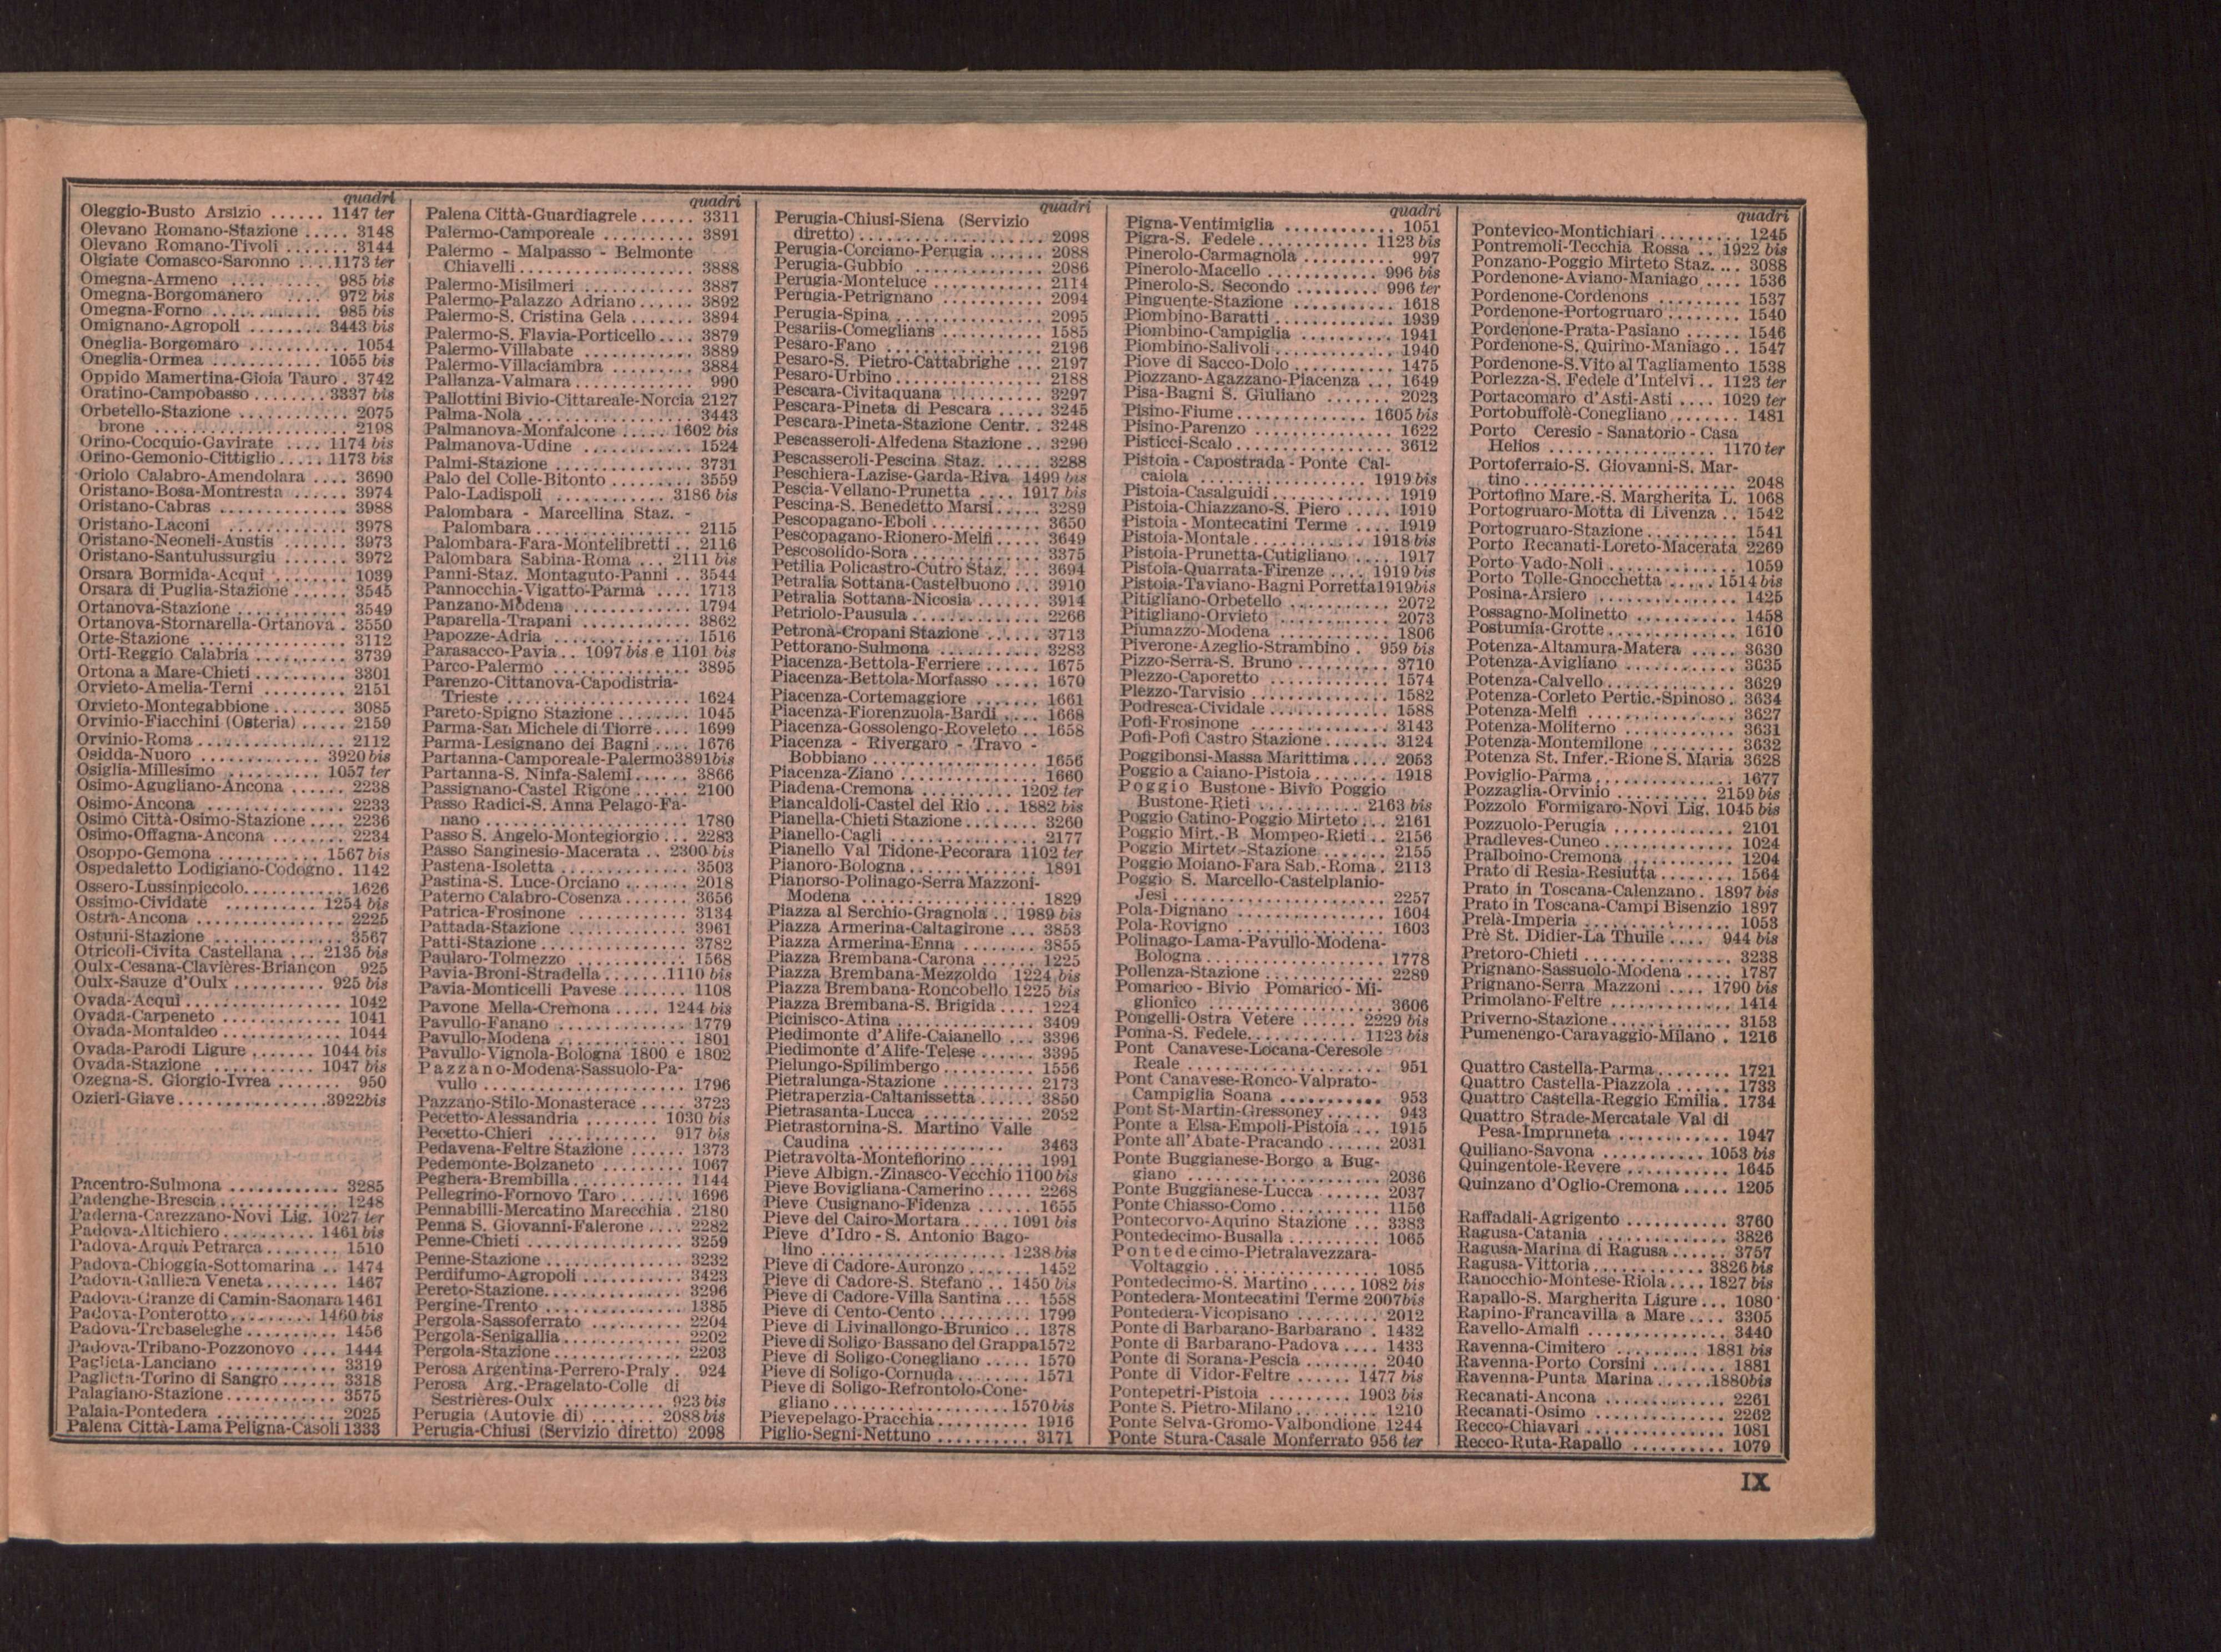 quadri
Oleggio-Busto Arsizio ...... 1147 ter
Olevano Romano-Stazione ..... 3148
Olevano Romano-Tivoli ....... 3144
Olgiate Comasco-Saronno ....1173 ter
Omegna-Armeno .... ..... 985 bis
Omegna-Borgomanero .... 972 bis
Omegna-Forno ............. 985 bis
Omignano-Agropoli ....... 3443 bis
Oneglia-Borgomaro .......... 1054
Oneglia-Ormea ............ 1055 bis
Oppido Mamertina-Gioia Tauro . 3742
Oratino-Campobasso ........ 3337 bis
Orbetello-Stazione ............ 2075
brone ..................... 2198
Orino-Cocquio-Gavirate .... 1174 bis
Orino-Gemonio-Cittiglio ..... 1173 bis
Oriolo Calabro-Amendolara .... 3690
Oristano-Bosa-Montresta ...... 3974
Oristano-Cabras .............. 3988
Oristano-Laconi ............. 3978
Oristano-Neoneli-Austis ....... 3973
Oristano-Santulussurgiu ....... 3972
Orsara Bormida-Acqui ........ 1039
Orsara di Puglia-Stazione ...... 3545
Ortanova-Stazione ............ 3549
Ortanova-Stornarella-Ortanova . 3550
Orte-Stazione ................ 3112
Orti-Reggio Calabria .......... 3739
Ortona a Mare-Chieti .......... 3301
Orvieto-Amelia-Terni ......... 2151
Orvieto-Montegabbione ........ 3085
Orvinio-Fiacchini (Osteria) ..... 2159
Orvinio-Roma ................ 2112
Osidda-Nuoro ............. 3920 bis
Osiglia-Millesimo .......... 1057 ter
Osimo-Agugliano-Ancona ...... 2238
Osimo-Ancona ............... 2233
Osimo Città-Osimo-Stazione .... 2236
Osimo-Offagna-Ancona ........ 2234
Osoppo-Gemona ........... 1567 bis
Ospedaletto Lodigiano-Codogno . 1142
Ossero-Lussinpiccolo........... 1626
Ossimo-Cividate .......... 1254 bis
Ostra-Ancona ................. 2225
Ostuni-Stazione .............. 3567
Otricoli-Civita Castellana ... 2135 bis
Oulx-Cesana-Clavières-Briançon 925
Oulx-Sauze d'Oulx .......... 925 bis
Ovada-Acqui ................. 1042
Ovada-Carpeneto ............. 1041
Ovada-Montaldeo ............. 1044
Ovada-Parodi Ligure ....... 1044 bis
Ovada-Stazione ........... 1047 bis
Ozegna-S. Giorgio-Ivrea ....... 950
Ozieri-Giave ................3922bis
Pacentro-Sulmona ............ 3285
Padenghe-Brescia .............. 1248
Paderna-Carezzano-Novi Lig. 1027 ter
Padova-Altichiero .......... 1461 bis
Padova-Arquà Petrarca ........ 1510
Padova-Chioggia-Sottomarina .. 1474
Padova-Galliera Veneta ........ 1467
Padova-Granze di Camin-Saonara 1461
Padova-Ponterotto .......... 1460 bis
Padova-Trebaseleghe .......... 1456
Padova-Tribano-Pozzonovo .... 1444
Paglieta-Lanciano ............ 3319
Paglieta-Torino di Sangro ...... 3318
Palagiano-Stazione ............ 3575
Palaia-Pontedera .............. 2025
Palena Città-Lama Peligna-Casoli 1333
quadri
Palena Città-Guardiagrele ...... 3311
Palermo-Camporeale .......... 3891
Palermo - Malpasso - Belmonte
Chiavelli .................... 3888
Palermo-Misilmeri ............ 3887
Palermo-Palazzo Adriano ...... 3892
Palermo-S. Cristina Gela ....... 3894
Palermo-S. Flavia-Porticello .... 3879
Palermo-Villabate ............ 3889
Palermo-Villaciambra ......... 3884
Pallanza-Valmara ............. 990
Pallottini Bivio-Cittareale-Norcia 2127
Palma-Nola .................. 3443
Palmanova-Monfalcone ..... 1602 bis
Palmanova-Udine ............ 1524
Palmi-Stazione ............... 3731
Palo del Colle-Bitonto ......... 3559
Palo-Ladispoli ............ 3186 bis
Palombara - Marcellina Staz. -
Palombara ................. 2115
Palombara-Fara-Montelibretti .. 2116
Palombara Sabina-Roma ... 2111 bis
Panni-Staz. Montaguto-Panni .. 3544
Pannocchia-Vigatto-Parma .... 1713
Panzano-Modena ............. 1794
Paparella-Trapani ............ 3862
Papozze-Adria ............... 1516
Parasacco-Pavia .. 1097 bis e 1101 bis
Parco-Palermo ............... 3895
Parenzo-Cittanova-Capodistria-
Trieste .................... 1624
Pareto-Spigno Stazione ........ 1045
Parma-San Michele di Tiorre .... 1699
Parma-Lesignano dei Bagni .... 1676
Partanna-Camporeale-Palermo3891bis
Partanna-S. Ninfa-Salemi ...... 3866
Passignano-Castel Rigone ...... 2100
Passo Radici-S. Anna Pelago-Fa-
nano ...................... 1780
Passo S. Angelo-Montegiorgio ... 2283
Passo Sanginesio-Macerata .. 2300 bis
Pastena-Isoletta .............. 3503
Pastina-S. Luce-Orciano ....... 2018
Paterno Calabro-Cosenza ....... 3656
Patrica-Frosinone ............ 3134
Pattada-Stazione ............. 3961
Patti-Stazione ................ 3782
Paularo-Tolmezzo ............ 1568
Pavia-Broni-Stradella .......1110 bis
Pavia-Monticelli Pavese ....... 1108
Pavone Mella-Cremona ..... 1244 bis
Pavullo-Fanano .............. 1779
Pavullo-Modena .............. 1801
Pavullo-Vignola-Bologna 1800 e 1802
Pazzano-Modena-Sassuolo-Pa-
vullo ...................... 1796
Pazzano-Stilo-Monasterace ..... 3723
Pecetto-Alessandria ........ 1030 bis
Pecetto-Chieri ............ 917 bis
Pedavena-Feltre Stazione ...... 1373
Pedemonte-Bolzaneto ......... 1067
Peghera-Brembilla ............ 1144
Pellegrino-Fornovo Taro ....... 1696
Pennabilli-Mercatino Marecchia . 2180
Penna S. Giovanni-Falerone .... 2282
Penne-Chieti ................. 3259
Penne-Stazione ............... 3232
Perdifumo-Agropoli ........... 3423
Pereto-Stazione............... 3296
Pergine-Trento ............... 1385
Pergola-Sassoferrato .......... 2204
Pergola-Senigallia ............. 2202
Pergola-Stazione .............. 2203
Perosa Argentina-Perrero-Praly . 924
Perosa Arg.-Pragelato-Colle di
Sestrières-Oulx ............ 923 bis
Perugia (Autovie di) ....... 2088 bis
Perugia-Chiusi (Servizio diretto) 2098
quadri
Perugia-Chiusi-Siena (Servizio
diretto) ..................... 2098
Perugia-Corciano-Perugia ...... 2088
Perugia-Gubbio .............. 2086
Perugia-Monteluce ............ 2114
Perugia-Petrignano ........... 2094
Perugia-Spina ................ 2095
Pesariis-Comeglians ........... 1585
Pesaro-Fano ................. 2196
Pesaro-S. Pietro-Cattabrighe ... 2197
Pesaro-Urbino ................ 2188
Pescara-Civitaquana .......... 3297
Pescara-Pineta di Pescara ..... 3245
Pescara-Pineta-Stazione Centr. . 3248
Pescasseroli-Alfedena Stazione .. 3290
Pescasseroli-Pescina Staz. ..... 3288
Peschiera-Lazise-Garda-Riva 1499 bis
Pescia-Vellano-Prunetta .... 1917 bis
Pescina-S. Benedetto Marsi ..... 3289
Pescopagano-Eboli ............ 3650
Pescopagano-Rionero-Melfi ..... 3649
Pescosolido-Sora .............. 3375
Petilia Policastro-Cutro Staz. ... 3694
Petralia Sottana-Castelbuono ... 3910
Petralia Sottana-Nicosia ....... 3914
Petriolo-Pausula .............. 2266
Petronà-Cropani Stazione ...... 3713
Pettorano-Sulmona ........... 3283
Piacenza-Bettola-Ferriere ...... 1675
Piacenza-Bettola-Morfasso ..... 1670
Piacenza-Cortemaggiore ....... 1661
Piacenza-Fiorenzuola-Bardi .... 1668
Piacenza-Gossolengo-Roveleto .. 1658
Piacenza - Rivergaro - Travo -
Bobbiano .................. 1656
Piacenza-Ziano ............... 1660
Piadena-Cremona .......... 1202 ter
Piancaldoli-Castel del Rio ... 1882 bis
Pianella-Chieti Stazione ........ 3260
Pianello-Cagli ................ 2177
Pianello Val Tidone-Pecorara 1102 ter
Pianoro-Bologna .............. 1891
Pianorso-Polinago-Serra Mazzoni-
Modena ................... 1829
Piazza al Serchio-Gragnola .. 1989 bis
Piazza Armerina-Caltagirone ... 3853
Piazza Armerina-Enna ........ 3855
Piazza Brembana-Carona ...... 1225
Piazza Brembana-Mezzoldo 1224 bis
Piazza Brembana-Roncobello 1225 bis
Piazza Brembana-S. Brigida .... 1224
Picinisco-Atina ............... 3409
Piedimonte d'Alife-Caianello ... 3396
Piedimonte d'Alife-Telese ...... 3395
Pielungo-Spilimbergo .......... 1556
Pietralunga-Stazione .......... 2173
Pietraperzia-Caltanissetta ...... 3850
Pietrasanta-Lucca ............ 2032
Pietrastornina-S. Martino Valle
Caudina .................. 3463
Pietravolta-Montefiorino ....... 1991
Pieve Albign.-Zinasco-Vecchio 1100 bis
Pieve Bovigliana-Camerino ..... 2268
Pieve Cusignano-Fidenza ...... 1655
Pieve del Cairo-Mortara ..... 1091 bis
Pieve d'Idro - S. Antonio Bago-
lino .................... 1238 bis
Pieve di Cadore-Auronzo ....... 1452
Pieve di Cadore-S. Stefano .. 1450 bis
Pieve di Cadore-Villa Santina ... 1558
Pieve di Cento-Cento .......... 1799
Pieve di Livinallongo-Brunico .. 1378
Pieve di Soligo-Bassano del Grappa1572
Pieve di Soligo-Conegliano ..... 1570
Pieve di Soligo-Cornuda ........ 1571
Pieve di Soligo-Refrontolo-Cone-
gliano .................... 1570 bis
Pievepelago-Pracchia .......... 1916
Piglio-Segni-Nettuno .......... 3171
quadri
Pigna-Ventimiglia ............ 1051
Pigra-S. Fedele ............ 1123 bis
Pinerolo-Carmagnola .......... 997
Pinerolo-Macello ............ 996 bis
Pinerolo-S. Secondo ......... 996 ter
Pinguente-Stazione ........... 1618
Piombino-Baratti ............. 1939
Piombino-Campiglia .......... 1941
Piombino-Salivoli ............. 1940
Piove di Sacco-Dolo ........... 1475
Piozzano-Agazzano-Piacenza ... 1649
Pisa-Bagni S. Giuliano ....... 2023
Pisino-Fiume .............. 1605 bis
Pisino-Parenzo ............... 1622
Pisticci-Scalo ................. 3612
Pistoia - Capostrada - Ponte Cal-
caiola ................... 1919 bis
Pistoia-Casalguidi ............. 1919
Pistoia-Chiazzano-S. Piero ..... 1919
Pistoia - Montecatini Terme .... 1919
Pistoia-Montale ............ 1918 bis
Pistoia-Prunetta-Cutigliano .... 1917
Pistoia-Quarrata-Firenze .... 1919 bis
Pistoia-Taviano-Bagni Porretta1919bis
Pitigliano-Orbetello ........... 2072
Pitigliano-Orvieto ............ 2073
Piumazzo-Modena ............ 1806
Piverone-Azeglio-Strambino . 959 bis
Pizzo-Serra-S. Bruno .......... 3710
Plezzo-Caporetto ............. 1574
Plezzo-Tarvisio ............... 1582
Podresca-Cividale ............. 1588
Pofi-Frosinone ............... 3143
Pofi-Pofi Castro Stazione ....... 3124
Poggibonsi-Massa Marittima .... 2053
Poggio a Caiano-Pistoia ........ 1918
Poggio Bustone-Bivio Poggio
Bustone-Rieti ........... 2163 bis
Poggio Catino-Poggio Mirteto ... 2161
Poggio Mirt.-B. Mompeo-Rieti .. 2156
Poggio Mirtet.-Stazione ....... 2155
Poggio Moiano-Fara Sab.-Roma . 2113
Poggio S. Marcello-Castelplanio-
Jesi ........................ 2257
Pola-Dignano ................ 1604
Pola-Rovigno ................ 1603
Polinago-Lama-Pavullo-Modena-
Bologna .................... 1778
Pollenza-Stazione ............. 2289
Pomarico - Bivio Pomarico - Mi-
glionico .................. 3606
Pongelli-Ostra Vetere ...... 2229 bis
Ponna-S. Fedele............ 1123 bis
Pont Canavese-Locana-Ceresole
Reale ..................... 951
Pont Canavese-Ronco-Valprato-
Campiglia Soana ........... 953
Pont St-Martin-Gressoney ...... 943
Ponte a Elsa-Empoli-Pistoia ... 1915
Ponte all'Abate-Pracando ...... 2031
Ponte Buggianese-Borgo a Bug-
giano ..................... 2036
Ponte Buggianese-Lucca ....... 2037
Ponte Chiasso-Como .......... 1156
Pontecorvo-Aquino Stazione ... 3383
Pontedecimo-Busalla .......... 1065
Pontedecimo-Pietralavezzara-
Voltaggio .................. 1085
Pontedecimo-S. Martino .... 1082 bis
Pontedera-Montecatini Terme 2007bis
Pontedera-Vicopisano ......... 2012
Ponte di Barbarano-Barbarano . 1432
Ponte di Barbarano-Padova .... 1433
Ponte di Sorana-Pescia ........ 2040
Ponte di Vidor-Feltre ...... 1477 bis
Pontepetri-Pistoia ......... 1903 bis
Ponte S. Pietro-Milano ......... 1210
Ponte Selva-Gromo-Valbondione 1244
Ponte Stura-Casale Monferrato 956 ter
quadri
Pontevico-Montichiari ......... 1245
Pontremoli-Tecchia Rossa .. 1922 bis
Ponzano-Poggio Mirteto Staz. ... 3088
Pordenone-Aviano-Maniago .... 1536
Pordenone-Cordenons ......... 1537
Pordenone-Portogruaro ........ 1540
Pordenone-Prata-Pasiano ...... 1546
Pordenone-S. Quirino-Maniago .. 1547
Pordenone-S.Vito al Tagliamento 1538
Porlezza-S. Fedele d'Intelvi .. 1123 ter
Portacomaro d'Asti-Asti .... 1029 ter
Portobuffolè-Conegliano ....... 1481
Porto Ceresio - Sanatorio - Casa
Helios ................. 1170 ter
Portoferraio-S. Giovanni-S. Mar-
tino ....................... 2048
Portofino Mare.-S. Margherita L. 1068
Portogruaro-Motta di Livenza .. 1542
Portogruaro-Stazione .......... 1541
Porto Recanati-Loreto-Macerata 2269
Porto Vado-Noli .............. 1059
Porto Tolle-Gnocchetta ..... 1514 bis
Posina-Arsiero ............... 1425
Possagno-Molinetto ........... 1458
Postumia-Grotte .............. 1610
Potenza-Altamura-Matera ..... 3630
Potenza-Avigliano ............ 3635
Potenza-Calvello .............. 3629
Potenza-Corleto Pertic.-Spinoso . 3634
Potenza-Melfi ................ 3627
Potenza-Moliterno ............ 3631
Potenza-Montemilone ......... 3632
Potenza St. Infer.-Rione S. Maria 3628
Poviglio-Parma ............... 1677
Pozzaglia-Orvinio .......... 2159 bis
Pozzolo Formigaro-Novi Lig. 1045 bis
Pozzuolo-Perugia ............. 2101
Pradleves-Cuneo .............. 1024
Pralboino-Cremona ........... 1204
Prato di Resia-Resiutta ........ 1564
Prato in Toscana-Calenzano . 1897 bis
Prato in Toscana-Campi Bisenzio 1897
Prelà-Imperia ................ 1053
Prè St. Didier-La Thuile .... 944 bis
Pretoro-Chieti ................ 3238
Prignano-Sassuolo-Modena ..... 1787
Prignano-Serra Mazzoni .... 1790 bis
Primolano-Feltre ............. 1414
Priverno-Stazione ............. 3153
Pumenengo-Caravaggio-Milano . 1216
Quattro Castella-Parma ........ 1721
Quattro Castella-Piazzola ...... 1733
Quattro Castella-Reggio Emilia . 1734
Quattro Strade-Mercatale Val di
Pesa-Impruneta ............ 1947
Quiliano-Savona ........... 1053 bis
Quingentole-Revere ........... 1645
Quinzano d'Oglio-Cremona ..... 1205
Raffadali-Agrigento ........... 3760
Ragusa-Catania .............. 3826
Ragusa-Marina di Ragusa ...... 3757
Ragusa-Vittoria ............. 3826 bis
Ranocchio-Montese-Riola .... 1827 bis
Rapallo-S. Margherita Ligure ... 1080
Rapino-Francavilla a Mare .... 3305
Ravello-Amalfi ............... 3440
Ravenna-Cimitero ......... 1881 bis
Ravenna-Porto Corsini ........ 1881
Ravenna-Punta Marina ......1880bis
Recanati-Ancona ............. 2261
Recanati-Osimo .............. 2262
Recco-Chiavari ............... 1081
Recco-Ruta-Rapallo .......... 1079
IX